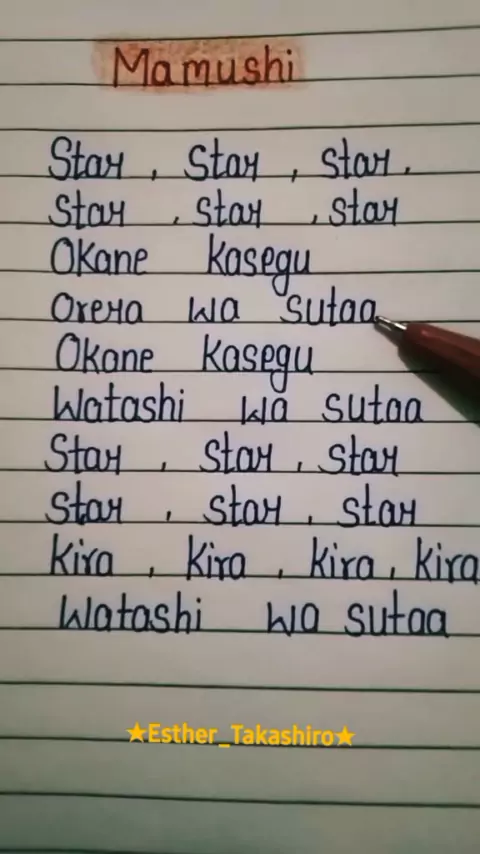 Mamushi
Star, Star, star.
Star, star, star
Okane kasegu
Orera wa sutaa
Okane kasegu
Watashi wa sutaa
Star, star, star
Star, star, star
Kira, kira, kira, kira
Watashi wa sutaa
★Esther_Takashiro★